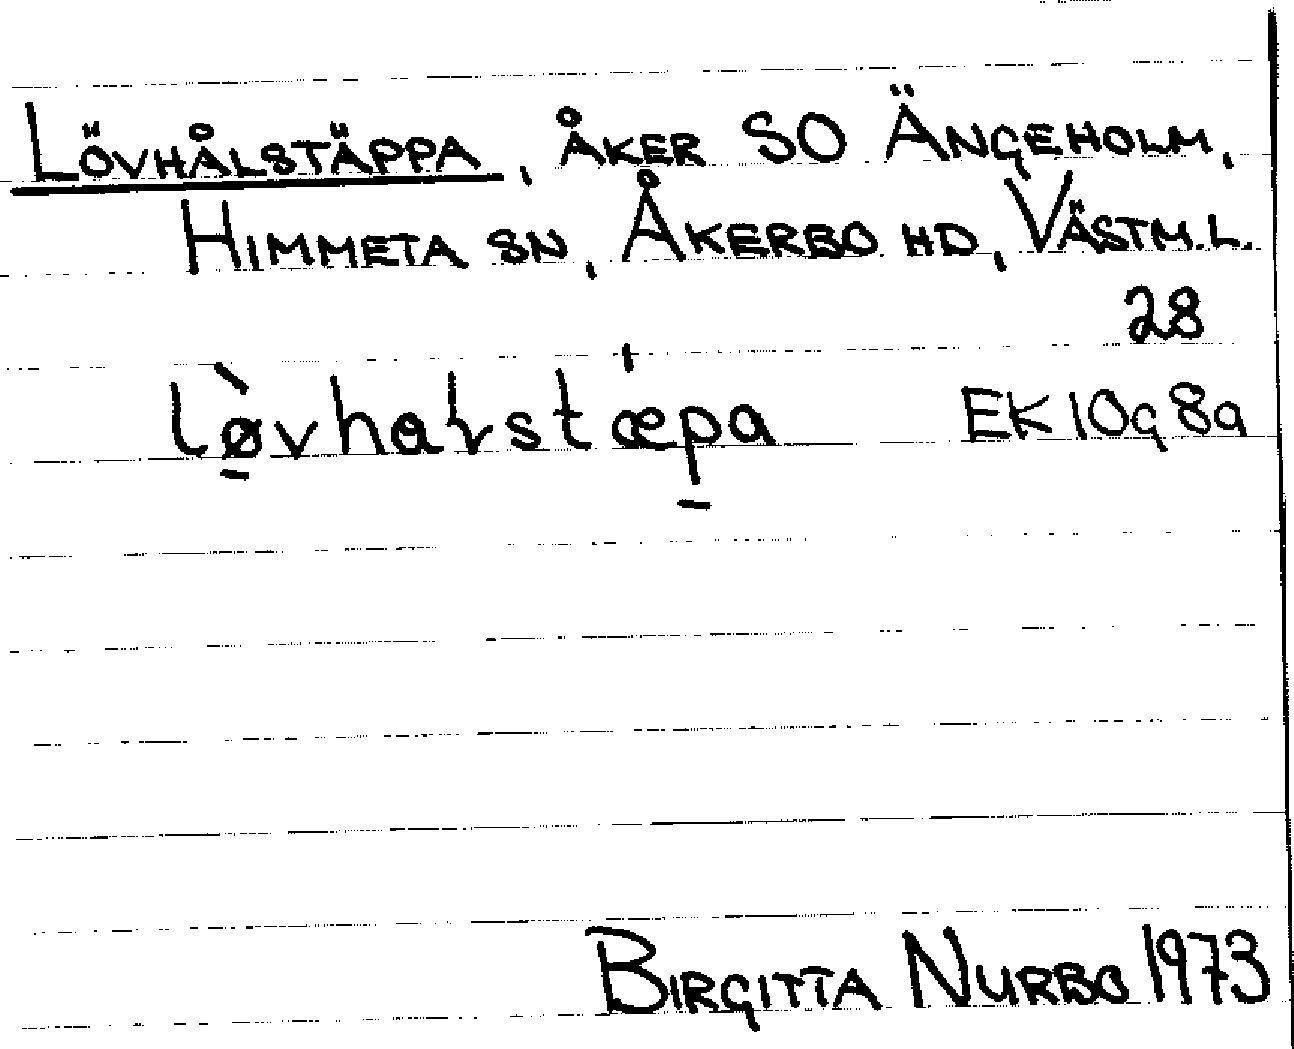 LÖVHÅLSTÄPPA, ÅKER SO ÄNGEHOLM,
HIMMETA SN, ÅKERBO HD, VÄSTM.L.
28
lø̠̀vhaɫstæ̍p̠a EK 10g 8a
BIRGITTA NURBO 1973